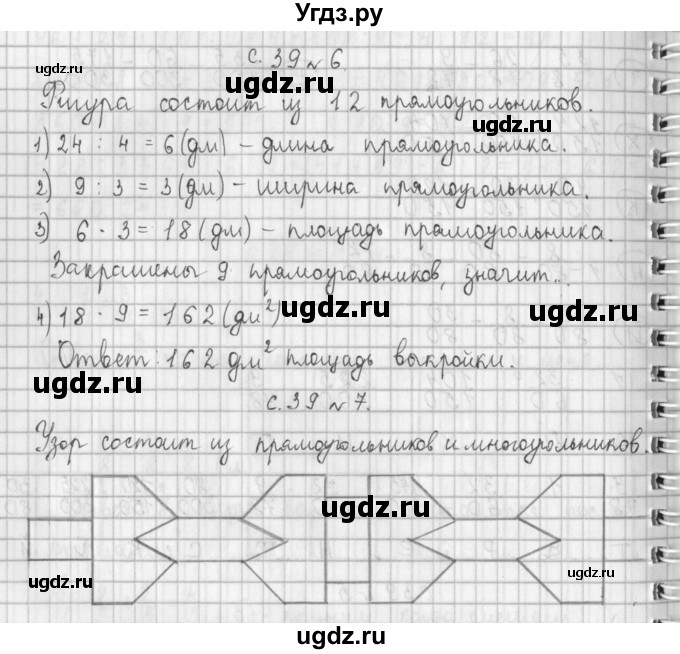 Угдз.ру
с. 39 № 6.
Фигура состоит из 12 прямоугольников.
1) 24 : 4 = 6 (дм) – длина прямоугольника.
2) 9 : 3 = 3 (дм) – ширина прямоугольника.
3) 6 · 3 = 18 (дм) – площадь прямоугольника.
Закрашены 9 прямоугольников, значит...
4) 18 · 9 = 162 (дм²)
Ответ: 162 дм² площадь выкройки.
с. 39 № 7.
Узор состоит из прямоугольников и многоугольников.
ugdz.ru
ugdz.ru
ugdz.ru
ugdz.ru
ugdz.ru
ugdz.ru
ugdz.ru
ugdz.ru
ugdz.ru
ugdz.ru
ugdz.ru
ugdz.ru